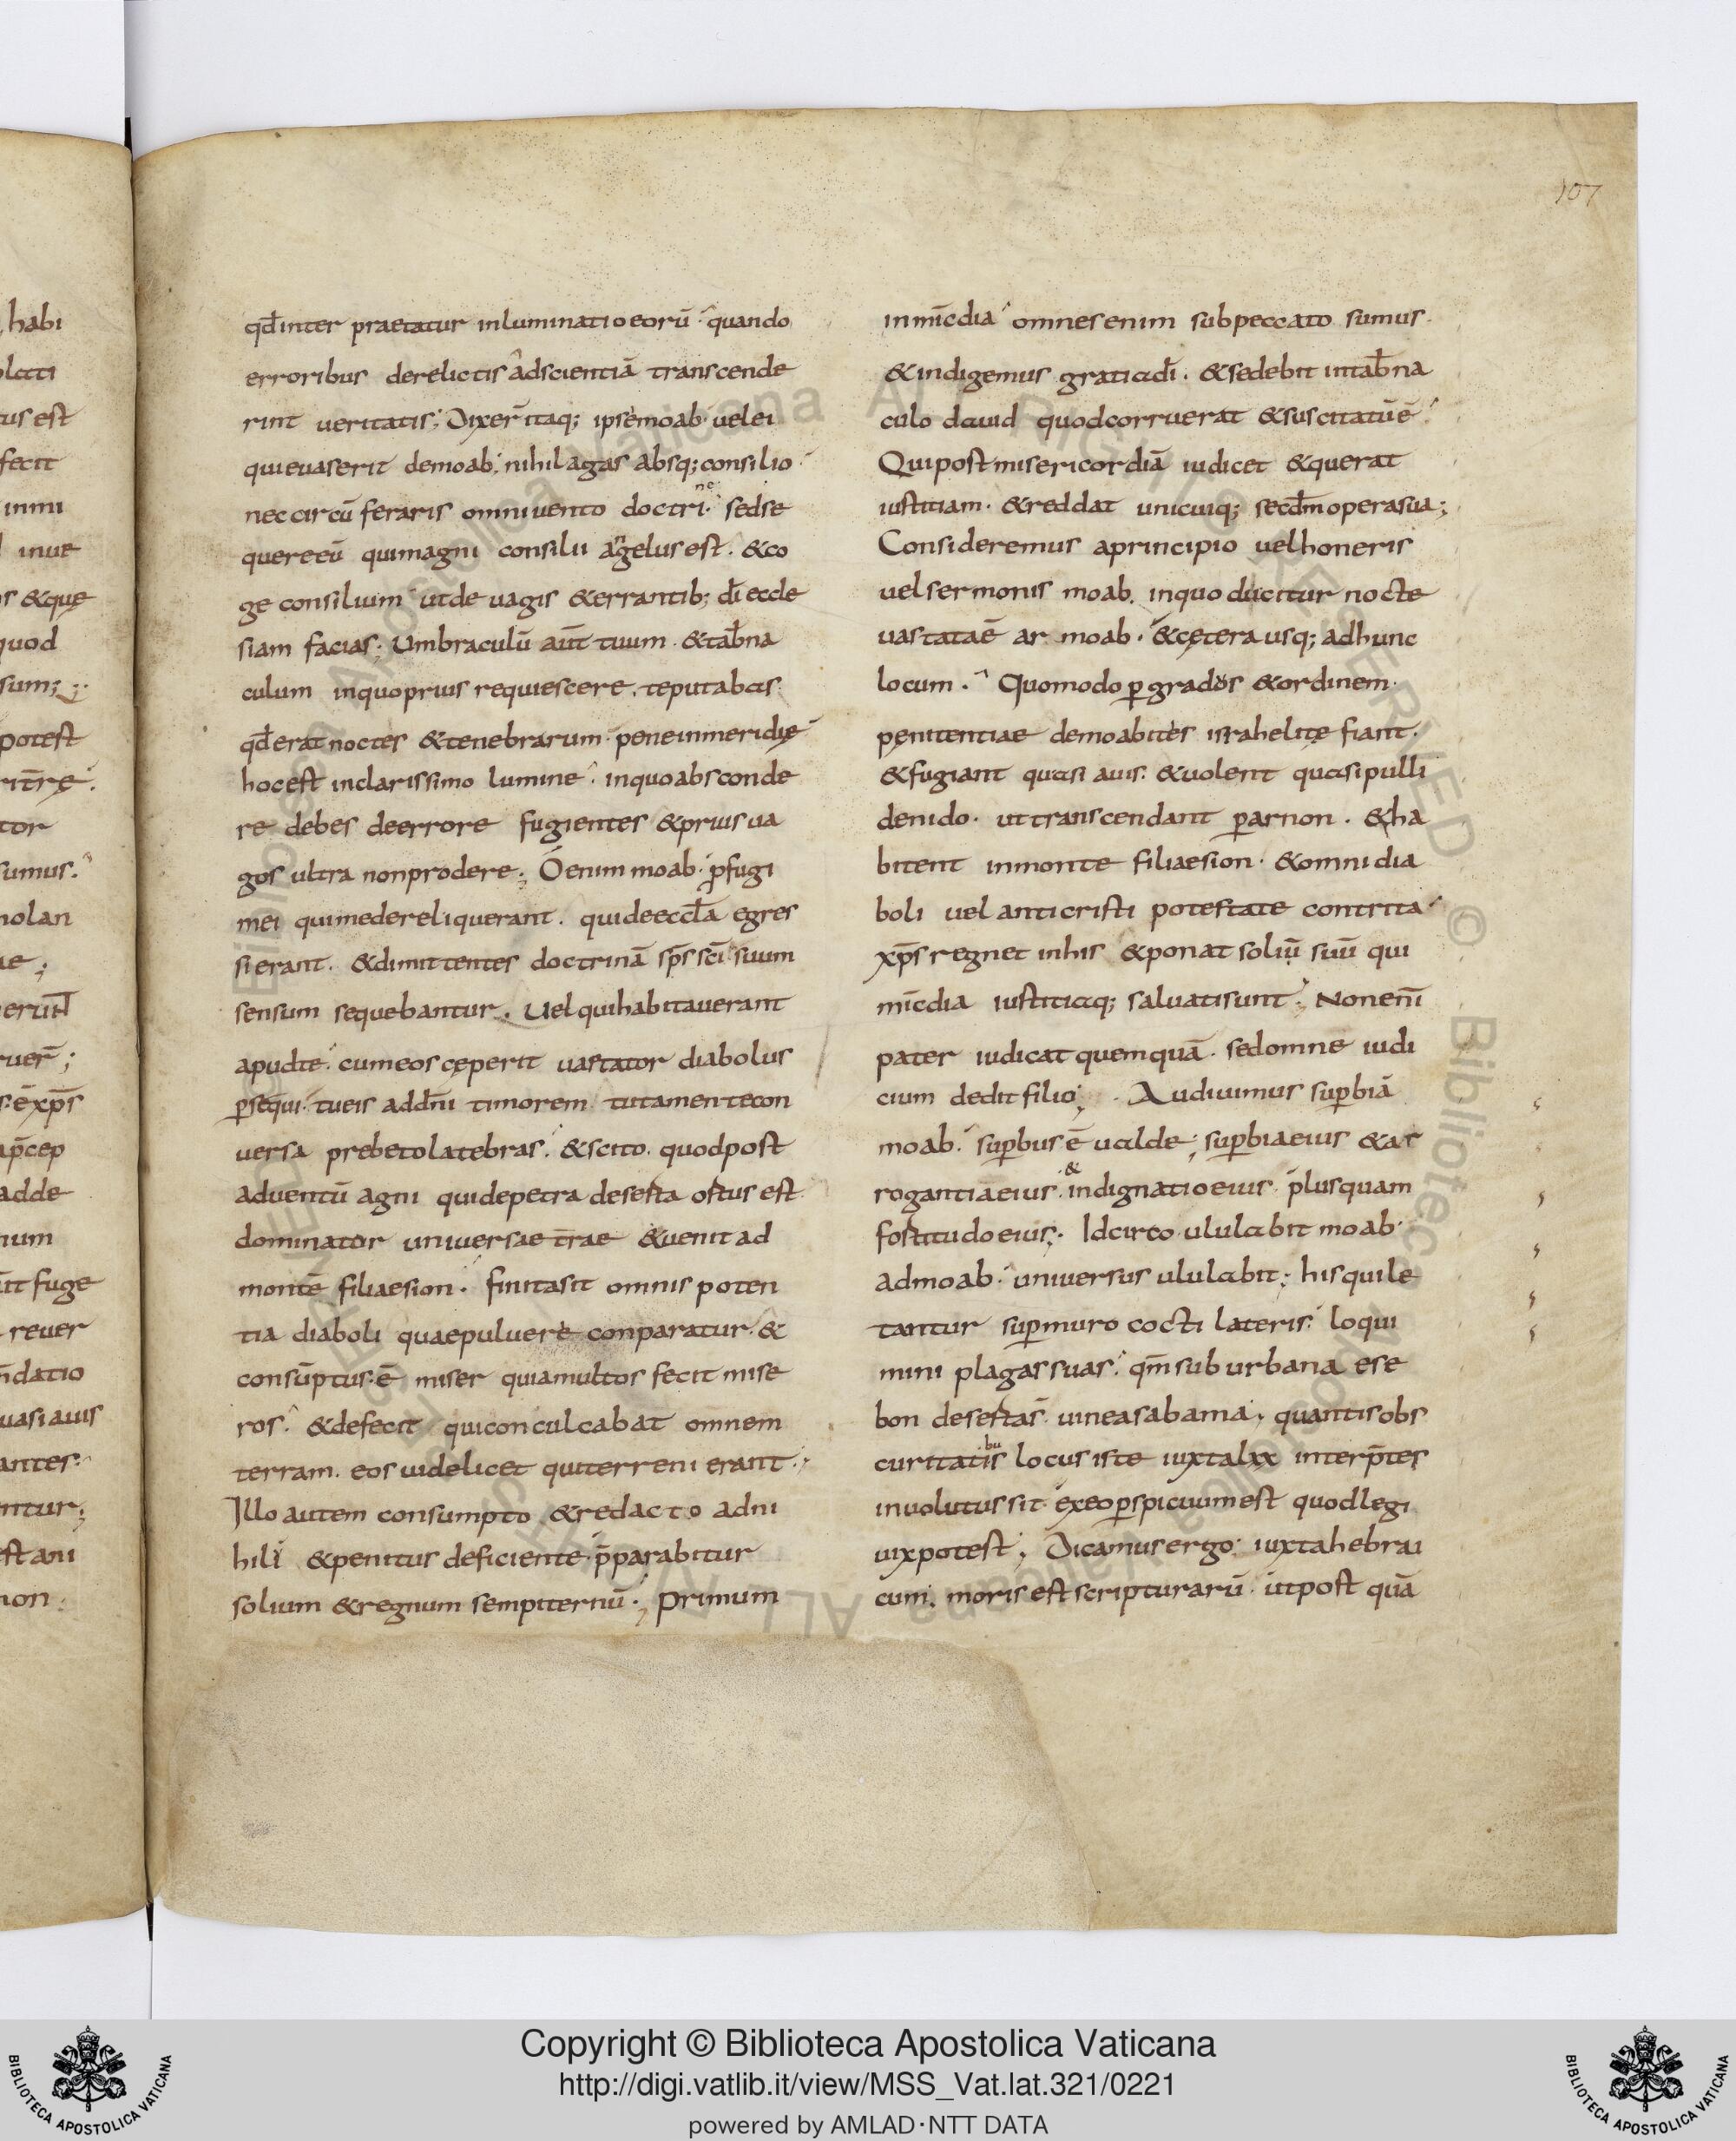 107
habi
tus est
fecit
inmi
inue
quod
potest
tor
sumus.
nolan
adde
num
fuge
reuer
datio
uasi auis
antes.
ntur;
non.
qd̄ inter praetatur inluminatio eorū. quando
erroribus derelictis adscientiā transcende
rint ueritatis; Dixer̄ itaq; ipse moab. uel ei
qui euaserit demoab. nihil agas absq; consilio.
nec circū feraris omni uento doctrine. sed se
quere eū qui magni consilii angelus est. & co
ge consilium ut de uagis & errantib; dī eccle
siam facias; Umbraculū aūt tuum & tab̄na
culum inquo prius requiescere. te putabas.
qd̄ erat noctes & tenebrarum. pene in meridie
hoc est in clarissimo lumine. inquo absconde
re debes de errore fugientes & prius ua
gos ultra non prodere; O enim moab. p̄fugi
mei qui me dereliquerant. qui de eccl̄a egres
si erant. & dimittentes doctrinā sp̄s sc̄i suum
sensum sequebantur. Uel qui habitauerant
apud te. cum eos ceperit uastator diabolus
p̄sequi. tu eis add̄ni timorem tuta mente con
uersa prebeto latebras. & scito. quod post
aduentū agni qui de petra deserta ortus est.
dominator uniuersae t̄rae & uenit ad
montē filiae sion. finita sit omnis poten
tia diaboli quae puluere conparatur. &
consūptus. ē miser quia multos fecit mise
ros. & defecit qui conculcabat omnem
terram. eos uidelicet qui terreni erant.
Illo autem consumpto & redacto adni
hili & penitus deficiente. p̄parabitur
solium & regnum sempiternū; Primum
in mīcdia omnes enim sub peccato sumus.
& indigemus gratia dī. & sedebit in tab̄na
culo dauid quod corruerat & suscitatū ē
Qui post misericordiā iudicet & querat
iustitiam. & reddat unicuiq; secd̄m opera sua;
Consideremus a principio uel honeris
uel sermonis moab. inquo dicitur nocte
uastata ē ar moab. & cętera usq; ad hunc
locum. Quomodo p̄ gradus & ordinem
pęnitentiae de moabites israhelitę fiant.
& fugiant quasi auis. & uolent quasi pulli
de nido. ut transcendant p̄ arnon. & ha
bitent in monte filiae sion. & omni dia
boli uel anticristi potestate contrita
xp̄s regnet in his & ponat soliū suū qui
mīcdia iustitiaq; saluati sunt; Non enī
pater iudicat quemquā. sed omne iudi
cium dedit filio; Audiuimus sup̄biā
moab. sup̄bus ē ualde; sup̄bia eius & ar
rogantia eius. & indignatio eius. plus quam
fortitudo eius; Idcirco ululabit moab.
ad moab. uniuersus ululabit; his qui le
tantur sup̄ muro cocti lateris. loqui
mini plagas suas. qm̄ suburbana ese
bon deserta s. uinea sabama; quantis obs
curitatibus locus iste iuxta lxx interp̄tes
inuolutus sit. ex eo p̄spicuum est quod legi
uix potest; Dicamus ergo. iuxta hebrai
cum. moris est scripturarū. ut post quā
Copyright © Biblioteca Apostolica Vaticana
http://digi.vatlib.it/view/MSS_Vat.lat.321/0221
powered by AMLAD·NTT DATA
BIBLIOTECA APOSTOLICA VATICANA
BIBLIOTECA APOSTOLICA VATICANA